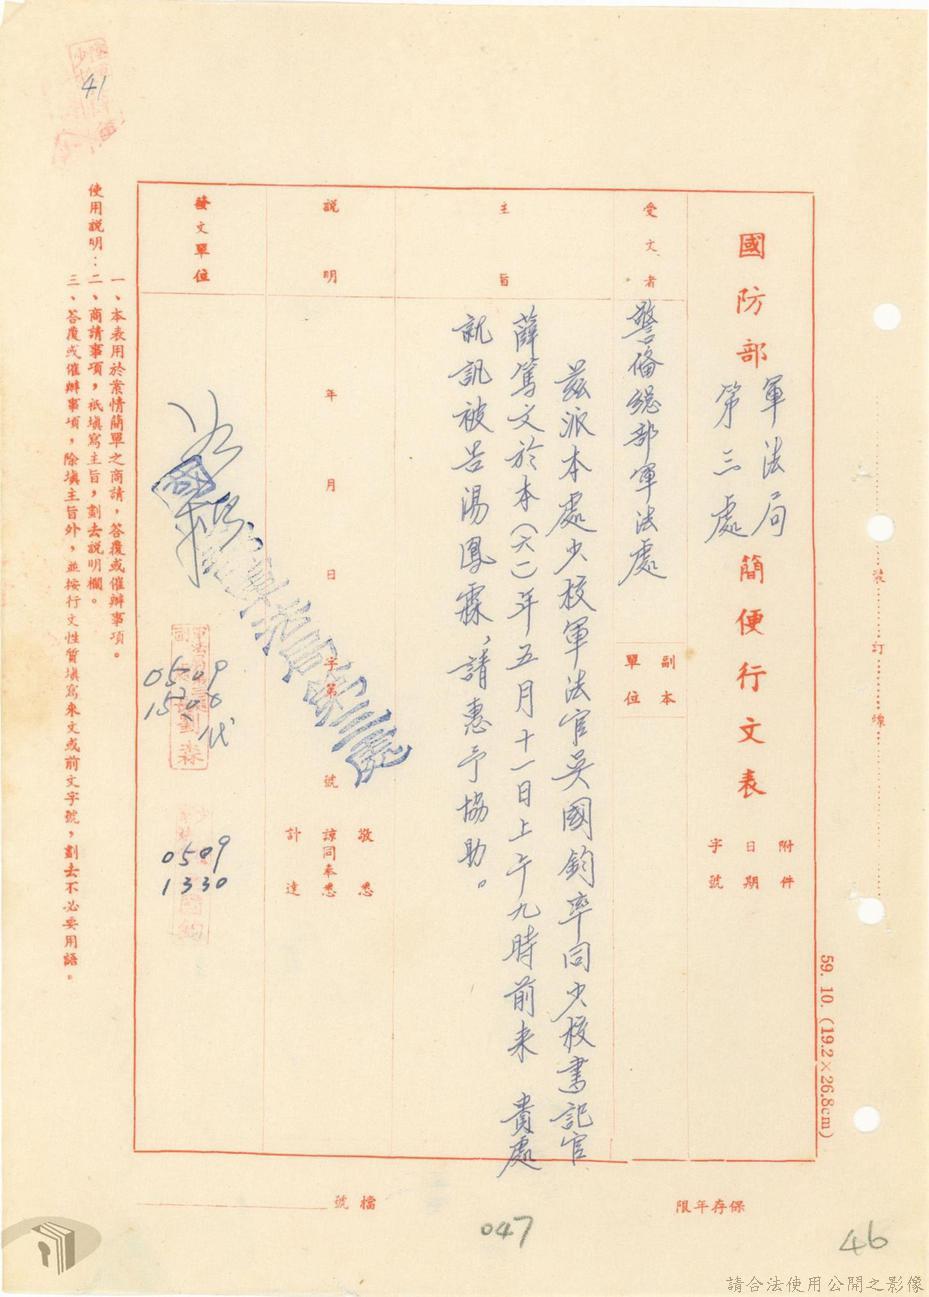 41
國防部軍法局第三處簡便行文表
附件
日期
字號
受文者
警備總部軍法處
副本
單位
主旨
茲派本處少校軍法官吳國鈞率同少校書記官
薛篤文於本(六二)年五月十一日上午九時前來 貴處
就訊被告湯鳳霖,請惠予協助。
說明
年 月 日 字第 號
敬悉
諒同奉悉
計達
發文單位
0509
代
劉森
0509
1330
國鈞
使用說明:
一、本表用於業情簡單之商請,答覆或催辦事項。
二、商請事項,祇填寫主旨,劃去說明欄。
三、答覆或催辦事項,除填主旨外,並按行文性質填寫來文或前文字號,劃去不必要用語。
裝 訂 線
59. 10. (19.2×26.8cm)
保存年限
檔號
047
46
請合法使用公開之影像